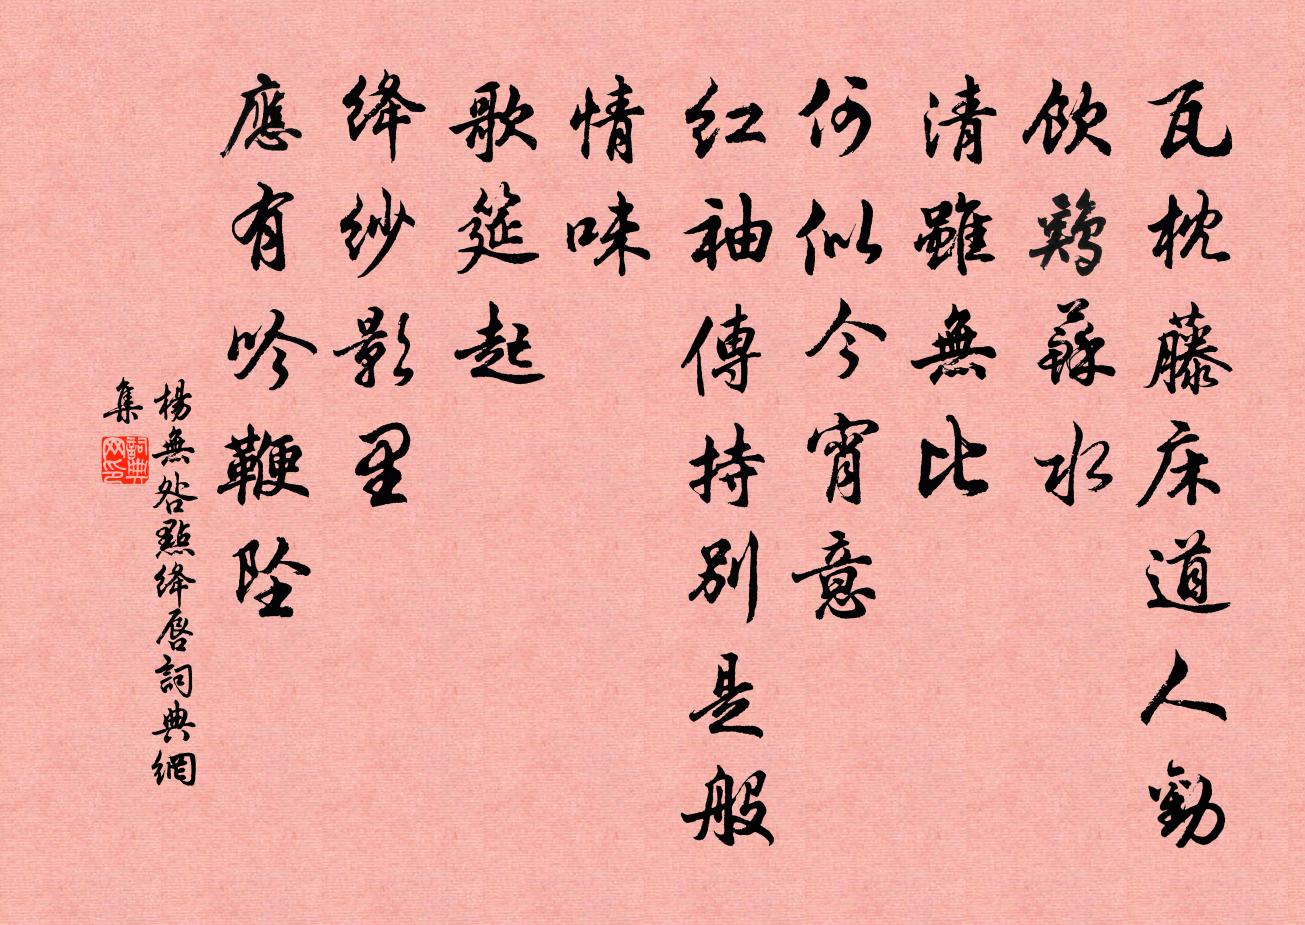 瓦枕藤床道人勸
飲鷄蘇水
清雖無比
何似今宵意
紅袖傳持別是般
情味
歌筵起
絳紗影里
應有吟鞭墜
楊無咎點絳唇詞典網
集
詞典網印